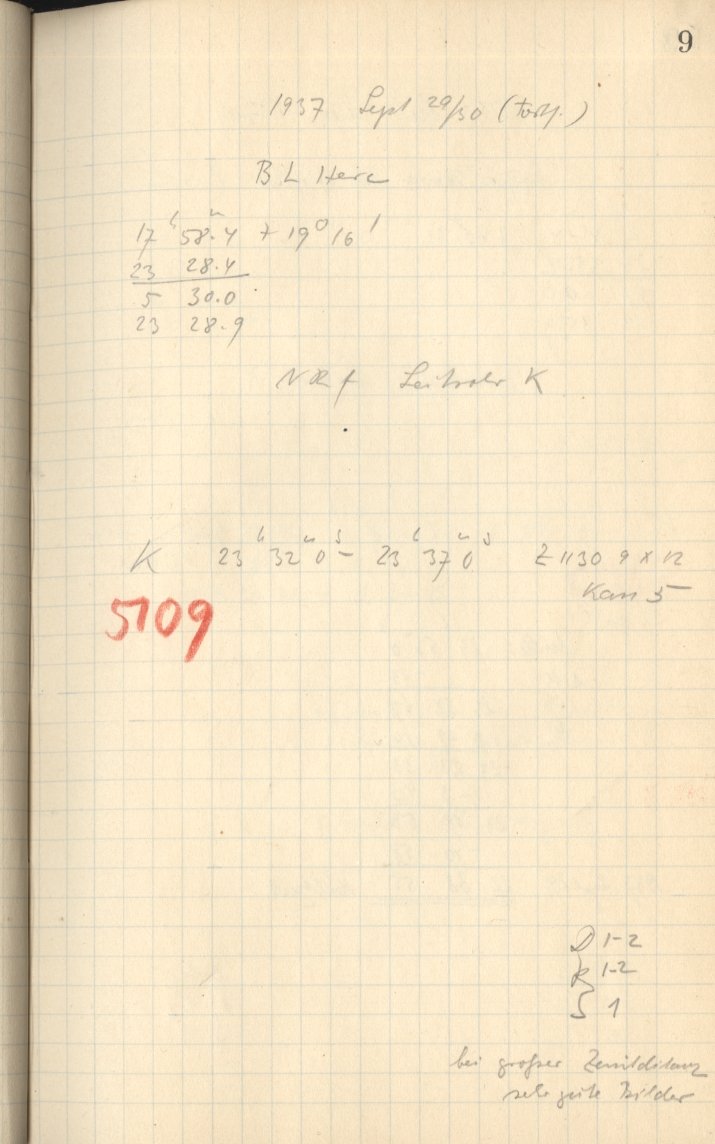 9
1937 Sept 29/30 (Forts.)
BL Herc
17ʰ 58ᵐ.4 + 19° 16'
23 28.4
5 30.0
23 28.9
Leitrohr K
K 23ʰ 32ᵐ 0ˢ - 23ʰ 37ᵐ 0ˢ Z 1130 9 x 12
Kass 5
5109
D 1-2
R 1-2
S 1
bei großer Zenitdistanz
sehr gute Bilder